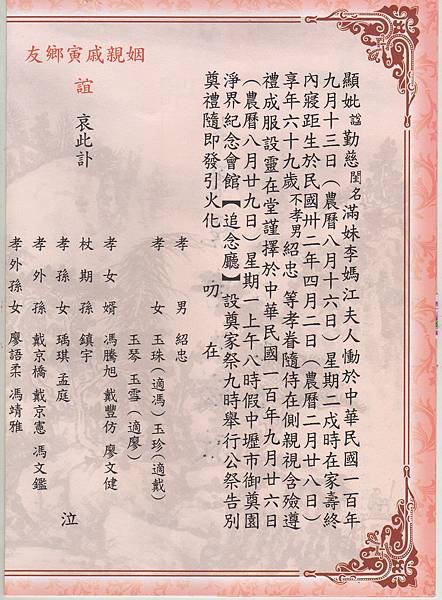 顯妣諡勤慈閨名滿妹李媽江夫人慟於中華民國一百年
九月十三日（農曆八月十六日）星期二戌時在家壽終
內寢距生於民國卅二年四月二日（農曆二月廿八日）
享年六十九歲不孝男紹忠 等孝眷隨侍在側親視含殮遵
禮成服設靈在堂謹擇於中華民國一百年九月廿六日
（農曆八月廿九日）星期一上午八時假中壢市御奠園
淨界紀念會館【追念廳】設奠家祭九時舉行公祭告別
奠禮隨即發引火化
叨在
姻親戚寅鄉友
誼
哀此訃
孝男 紹忠
孝女 玉珠（適馮）玉珍（適戴）
玉琴 玉雪（適廖）
孝女婿 馮騰旭 戴豐仿 廖文健
杖期孫 鎮宇
孝孫女 瑀琪 孟庭
孝外孫 戴京橋 戴京憲 馮文鑑
孝外孫女 廖語柔 馮靖雅
泣